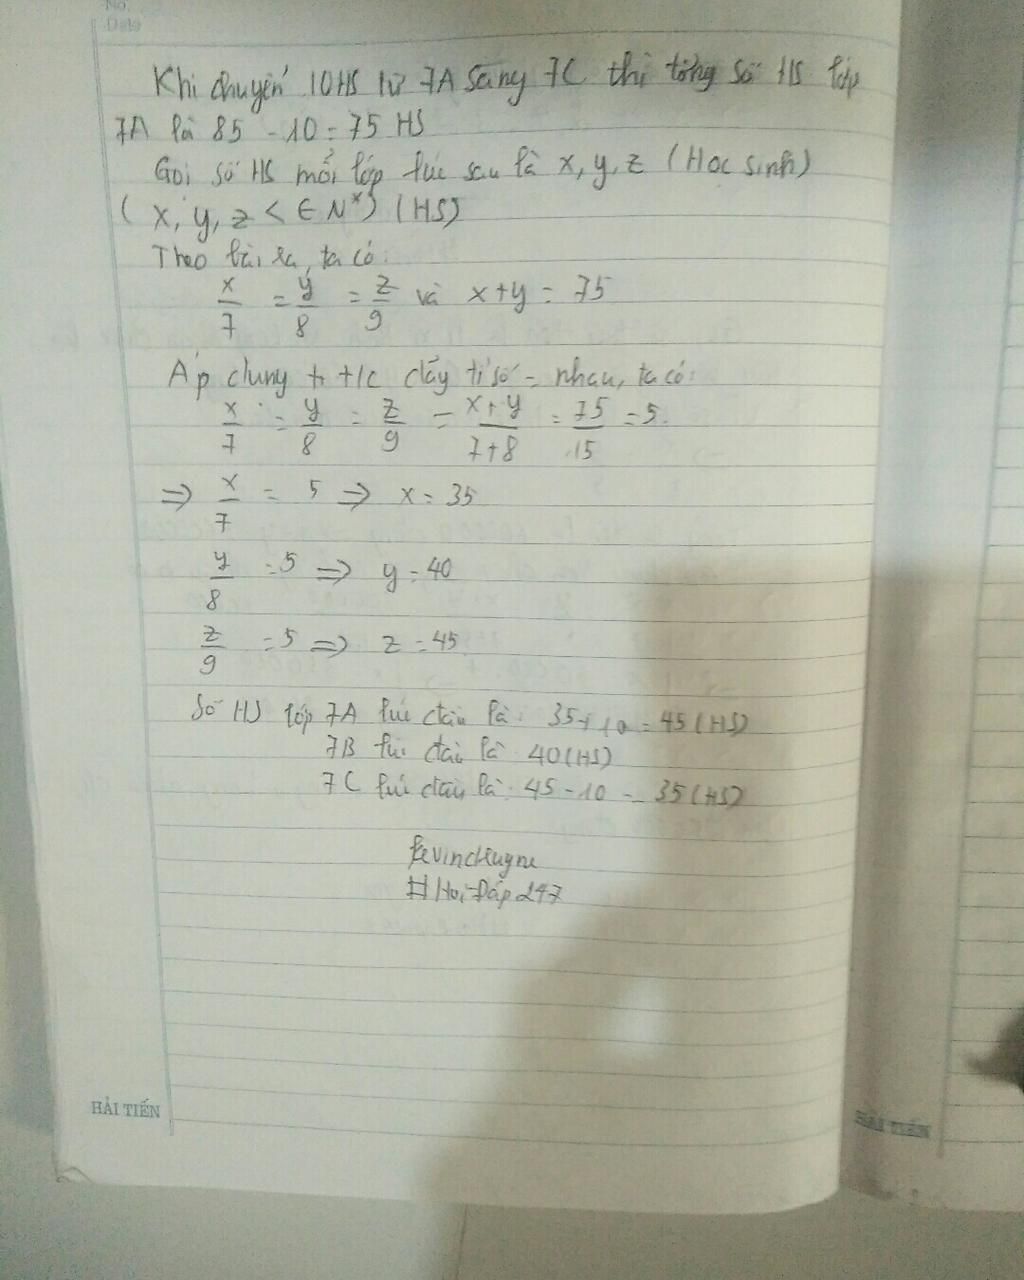 No.
Date
Khi chuyển 10HS từ 7A sang 7C thì tổng số HS lớp
7A là 85 - 10 = 75 HS
Gọi số HS mỗi lớp lúc sau là x, y, z (Học sinh)
(x, y, z < ∈ N*) (HS)
Theo bài ra, ta có:
x/7 = y/8 = z/9 và x+y = 75
Áp dụng t/c dãy tỉ số = nhau, ta có:
x/7 = y/8 = z/9 = x+y/7+8 = 75/15 = 5.
⇒ x/7 = 5 ⇒ x = 35
y/8 = 5 ⇒ y = 40
z/9 = 5 ⇒ z = 45
Số HS lớp 7A lúc đầu là: 35+10 = 45 (HS)
7B lúc đầu là 40 (HS)
7C lúc đầu là: 45 - 10 = 35 (HS)
#Hỏi Đáp 247
HẢI TIẾN
HẢI TIẾN